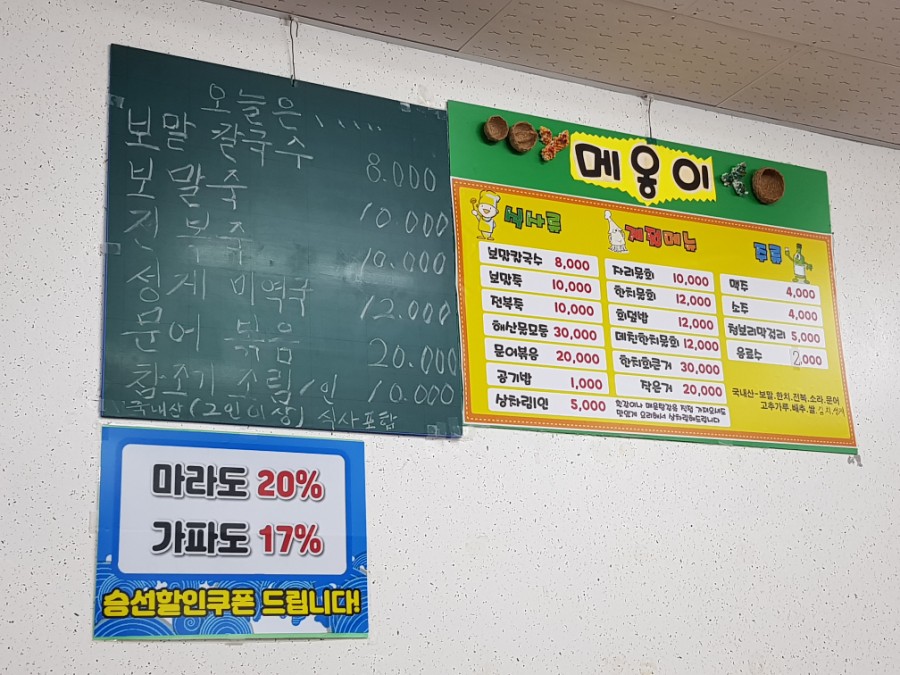 오늘은.....
보말 칼국수 8.000
보말죽 10.000
전복죽 10.000
성게 미역국 12.000
문어 볶음 20.000
참조기 조림 1인 10.000
국내산(2인이상) 식사포함
메옹이
식사류
보말칼국수 8,000
보말죽 10,000
전복죽 10,000
해산물모둠 30,000
문어볶음 20,000
공기밥 1,000
상차림1인 5,000
계절메뉴
자리물회 10,000
한치물회 12,000
회덮밥 12,000
데친한치물회 12,000
한치회큰거 30,000
작은거 20,000
횟감이나 매운탕감을 직접 가져오셔도
맛있게 요리해서 상차림해드립니다
주류
맥주 4,000
소주 4,000
청보리막걸리 5,000
음료수 2,000
국내산-보말,한치,전복,소라,문어
고추가루,배추,쌀,김치,성게
마라도 20%
가파도 17%
승선할인쿠폰 드립니다!